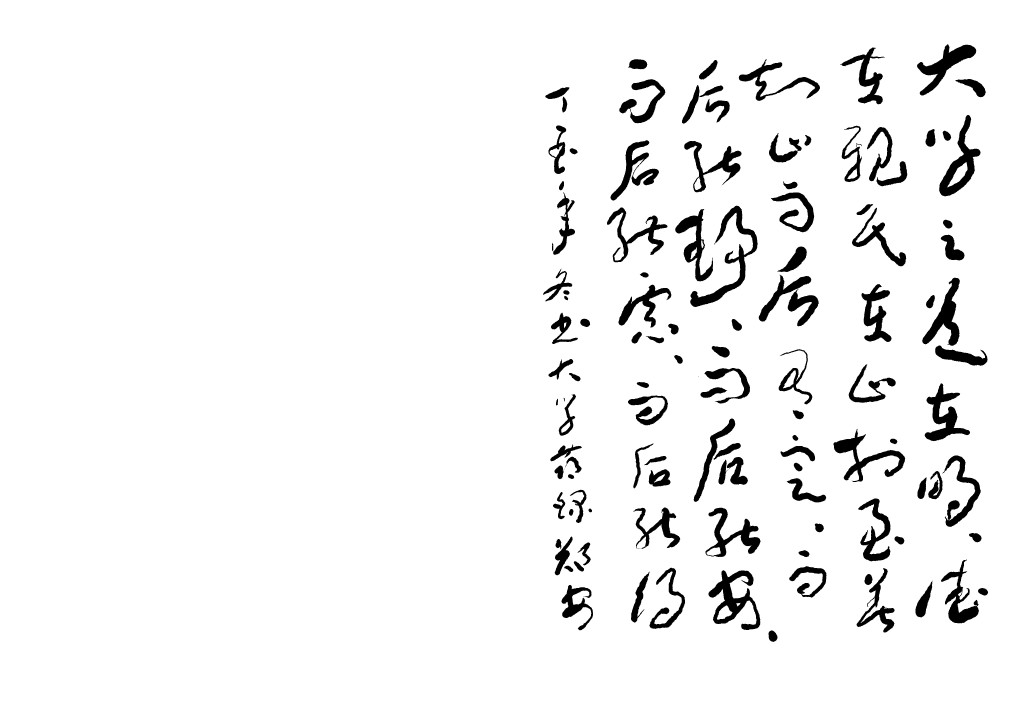 大学之道在明、德
在親民在止於至善
知止而后有定、而
后能靜、而后能安、
而后能慮、而后能得
丁酉年冬书大学節録鄭安